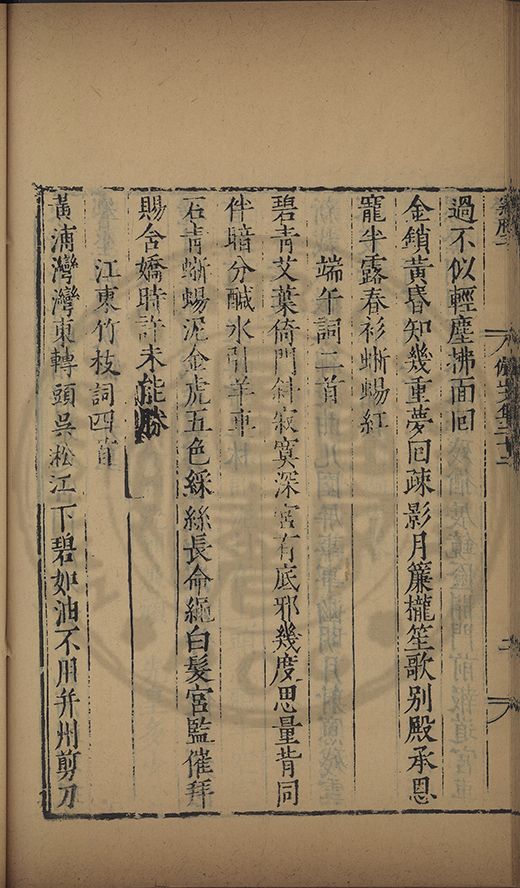 過不似輕塵拂面回
金鎖黃昏知幾重夢回疎影月簾櫳笙歌别殿承恩
寵半露春衫蜥蜴紅
端午詞二首
碧青艾葉倚門斜寂寞深宮有底邪幾度思量背同
伴暗分醎水引羊車
石青蜥蜴泥金虎五色綵絲長命繩白髮宮監催拜
賜含嬌時許未能勝
江東竹枝詞四首
黃浦灣灣東轉頭吳松江下碧如油不用并州剪刀